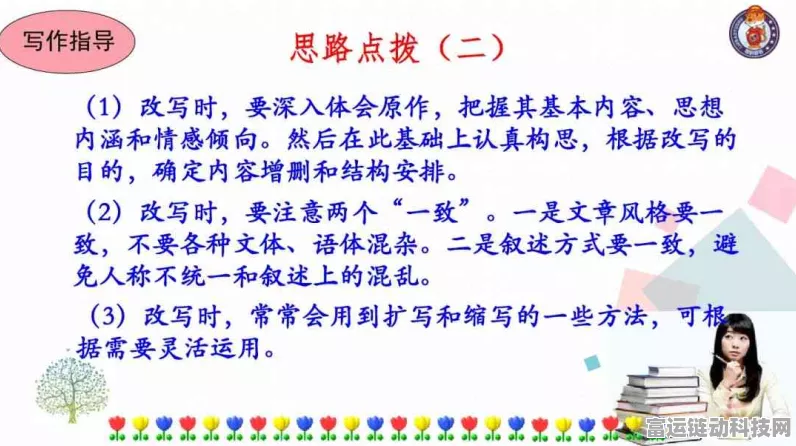 写作指导
思路点拨（二）
（1）改写时，要深入体会原作，把握其基本内容、思想
内涵和情感倾向。然后在此基础上认真构思，根据改写的
目的，确定内容增删和结构安排。
（2）改写时，要注意两个“一致”。一是文章风格要一
致，不要各种文体、语体混杂。二是叙述方式要一致，避
免人称不统一和叙述上的混乱。
（3）改写时，常常会用到扩写和缩写的一些方法，可根
据需要灵活运用。
富运链动科技网